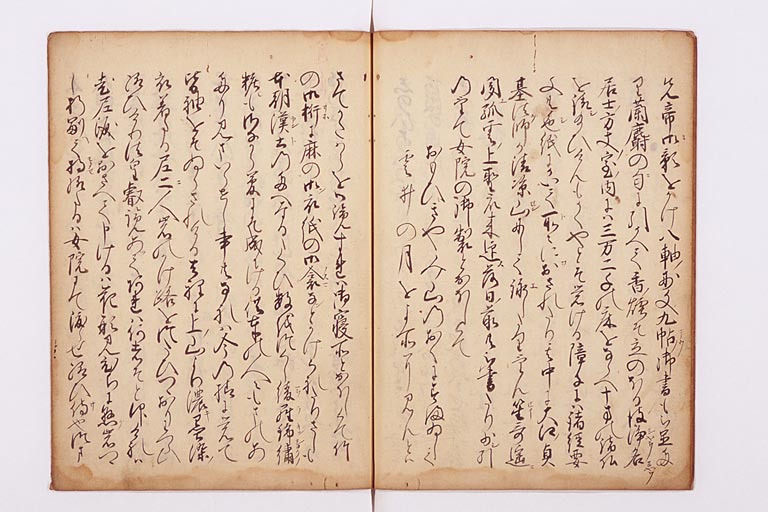 先帝の御影をかけ八軸妙文九帖御書も置た
り蘭麝の匂に引かへて香煙そ立のほる彼浄名
居士方丈室内に三万二千の床をならへ十方の諸仏
を請し給ひけんもかくやとそ覚ける障子に諸経要
文とも色紙にかいて所々におされたり其中に大江貞
基法師か清凉山にして詠したりけん笙哥遥
聞孤雲上聖衆来迎落日前とも書たり少引
のけて女院の御製とおほしくて
おもひきやみ山のおくにすまゐして
雲井の月をよそに見んとは
さてかたはらを御覧すれは御寝所とおほしくて竹
の御桁に麻の御衣紙の御衾なとかけられたりさしも
本朝漢土の妙なるたくひ数を尽し綾羅錦繍
粧もさなから夢にそ成にける供奉の人々も
見まいらせし事なれは今の様に覚て
皆袖をそぬらされける去程に上の山より濃き墨染
衣着たる尼二人岩のかけ路をつたひつゝおりわつらひ
給ひけり法皇叡覧あてあれは何者そと仰けれは
老尼涙をおさへて申けるは花籠ひちにかけ岩つゝ
し折副て持給たるは女院にて渡らせ給ひ候也